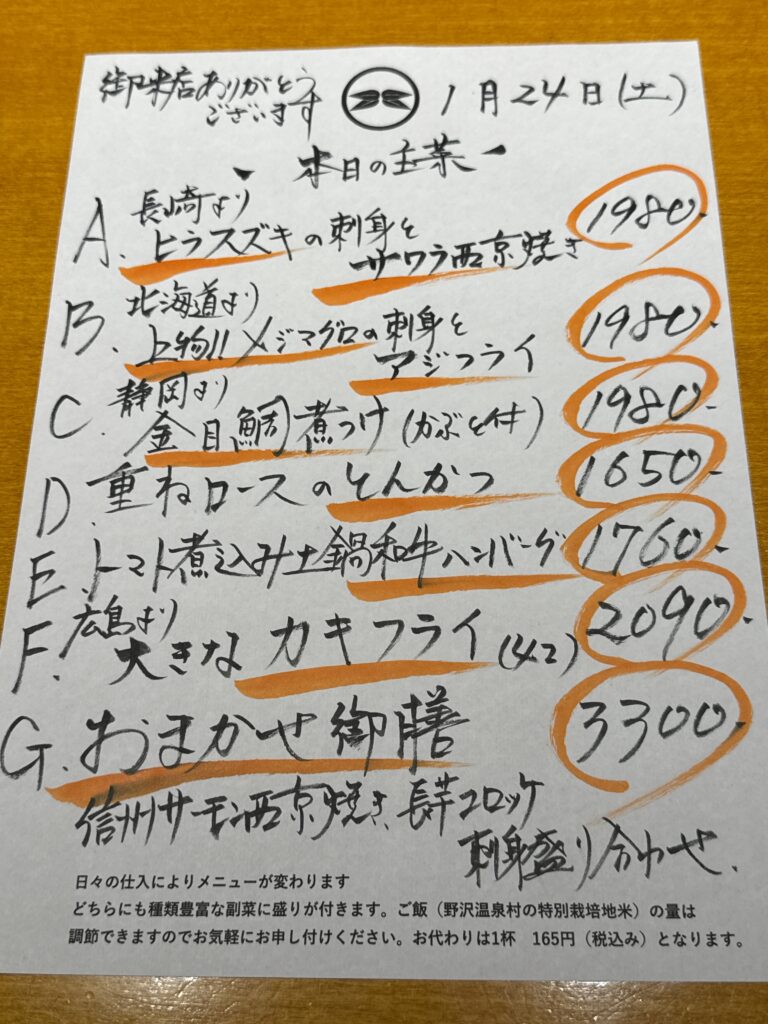 御来店ありがとう
ございます
1月24日(土)
本日の主菜
A. 長崎より
ヒラスズキの刺身と
サワラ西京焼き
1980.
B. 北海道より
上物!!メジマグロの刺身と
アジフライ
1980.
C. 静岡より
金目鯛煮つけ(かぶと付)
1980.
D. 重ねロースのとんかつ
1650.
E. トマト煮込み土鍋和牛ハンバーグ
1760.
F. 広島より
大きなカキフライ(4コ)
2090.
G. おまかせ御膳
3300.
信州サーモン西京焼き、長芋コロッケ
刺身盛り合わせ.
日々の仕入によりメニューが変わります
どちらにも種類豊富な副菜に盛りが付きます。ご飯(野沢温泉村の特別栽培地米)の量は
調節できますのでお気軽にお申し付けください。お代わりは1杯 165円(税込み)となります。